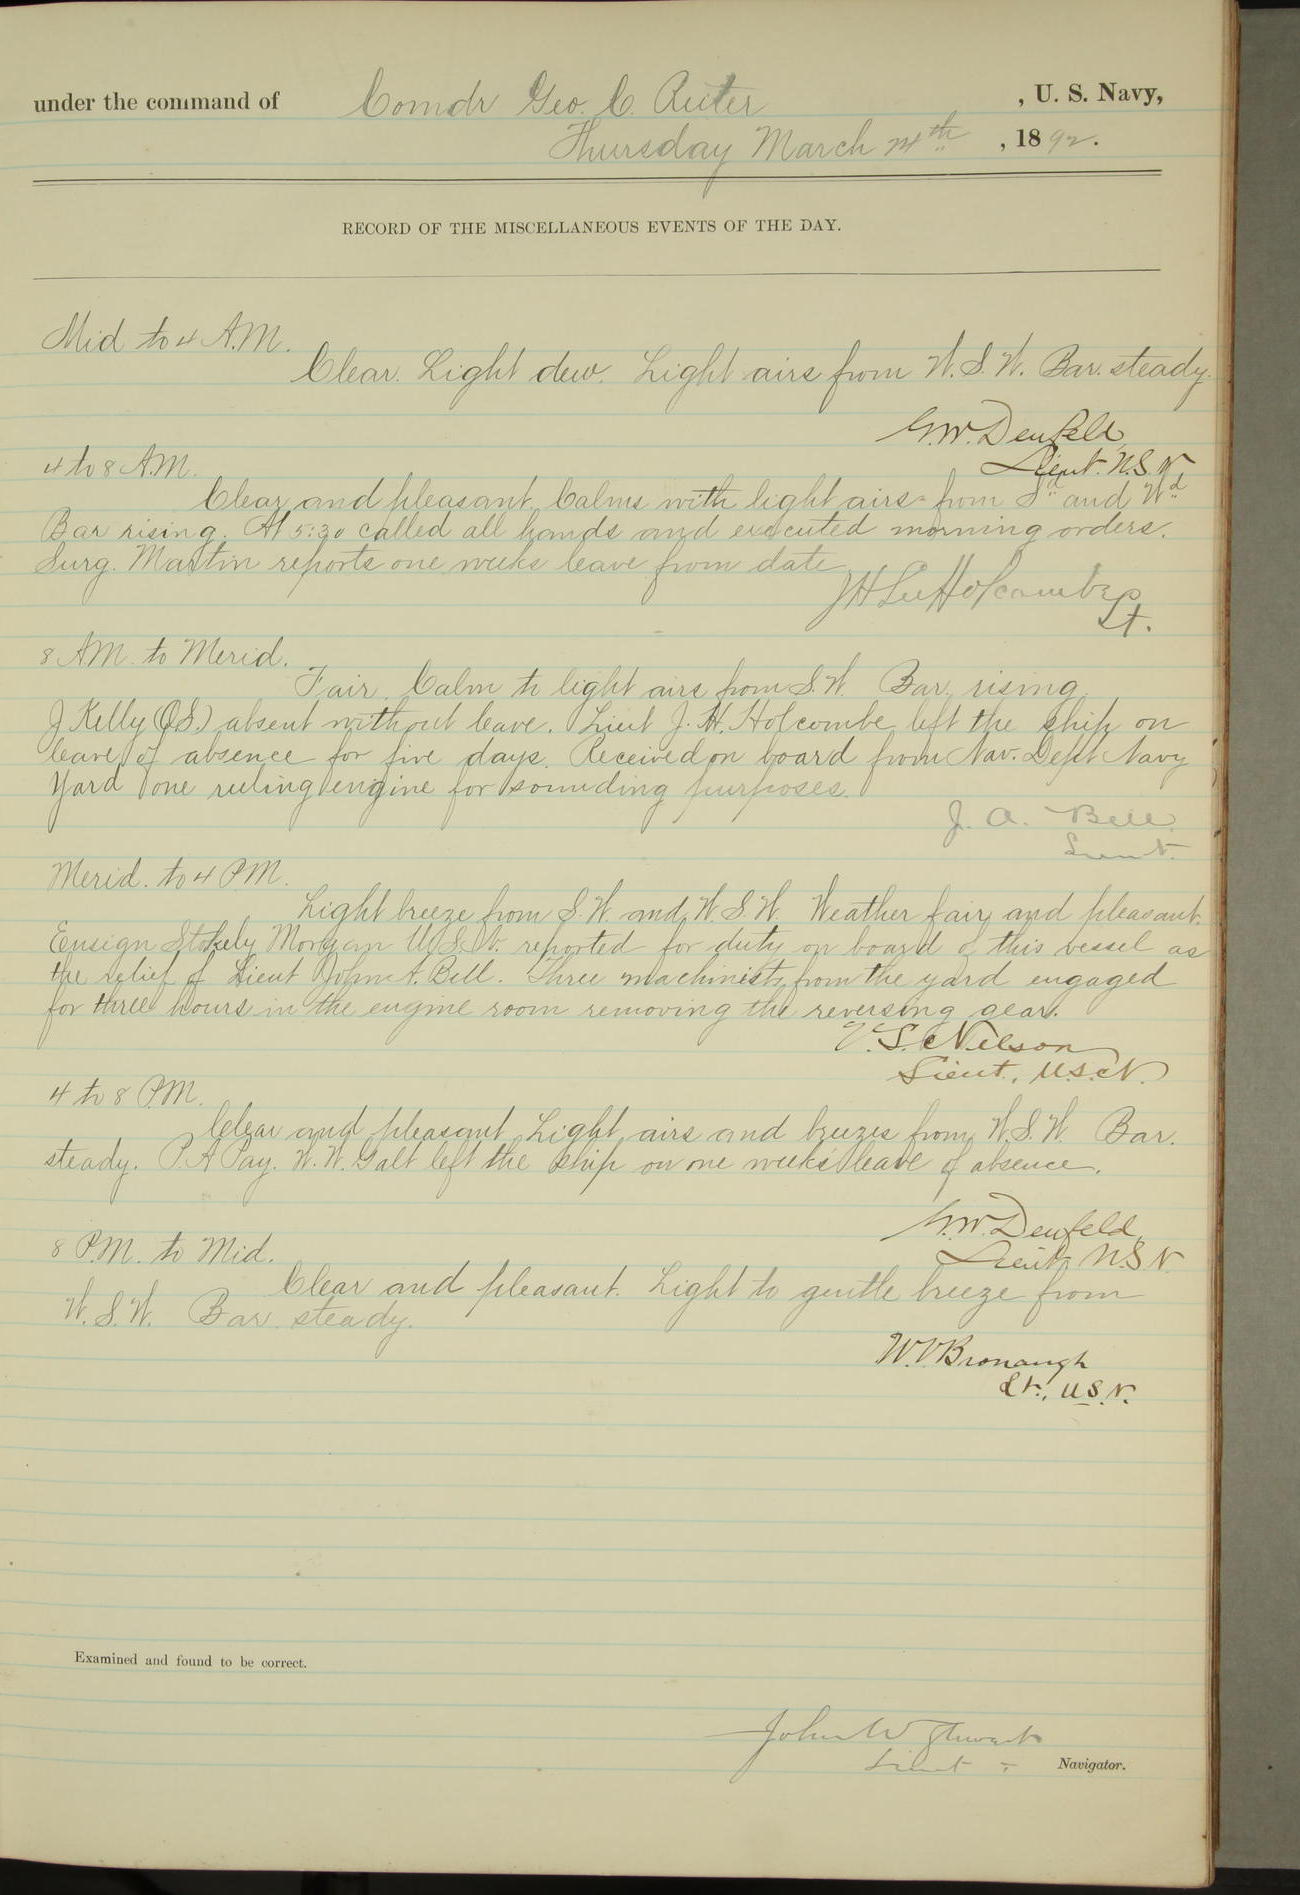 under the command of Comdr Geo. C. Reiter, U. S. Navy,
Thursday March 24th, 1892.
RECORD OF THE MISCELLANEOUS EVENTS OF THE DAY.
Mid to 4 A.M.
Clear. Light dew. Light airs from W.S.W. Bar. steady.
G.W. Denfeld,
Lieut. U.S.N
4 to 8 A.M.
Clear and pleasant. Calms with light airs from Sd and Wd
Bar rising. At 5:30 called all hands and executed morning orders.
Surg. Martin reports one weeks leave from date
JH Lee Holcombe
Lt.
8 AM. to Merid.
Fair. Calm to light airs from S.W. Bar. rising.
J Kelly (O.S.) absent without leave. Lieut J. H. Holcombe left the ship on
leave of absence for five days. Received on board from Nav. Dept Navy
Yard one reeling engine for sounding purposes.
J. A. Bell
Lieut.
Merid. to 4 P.M.
Light breeze from S.W. and W.S.W. Weather fair and pleasant.
Ensign Stokely Morgan U.S.N. reported for duty on board of this vessel as
the relief of Lieut John A. Bell. Three machinists from the yard engaged
for three hours in the engine room removing the reversing gear.
V. S. Nelson
Lieut., U.S.N.
4 to 8 P.M.
Clear and pleasant Light airs and breezes from W.S.W. Bar.
steady. P.A Pay. W.W. Galt left the ship on one weeks leave of absence.
G.W. Denfeld,
Lieut U.S.N
8 P.M. to Mid.
Clear and pleasant. Light to gentle breeze from
W.S.W. Bar. steady.
W.V Bronaugh
Lt., U.S.N.
Examined and found to be correct.
John W Stewart
Lieut Navigator.